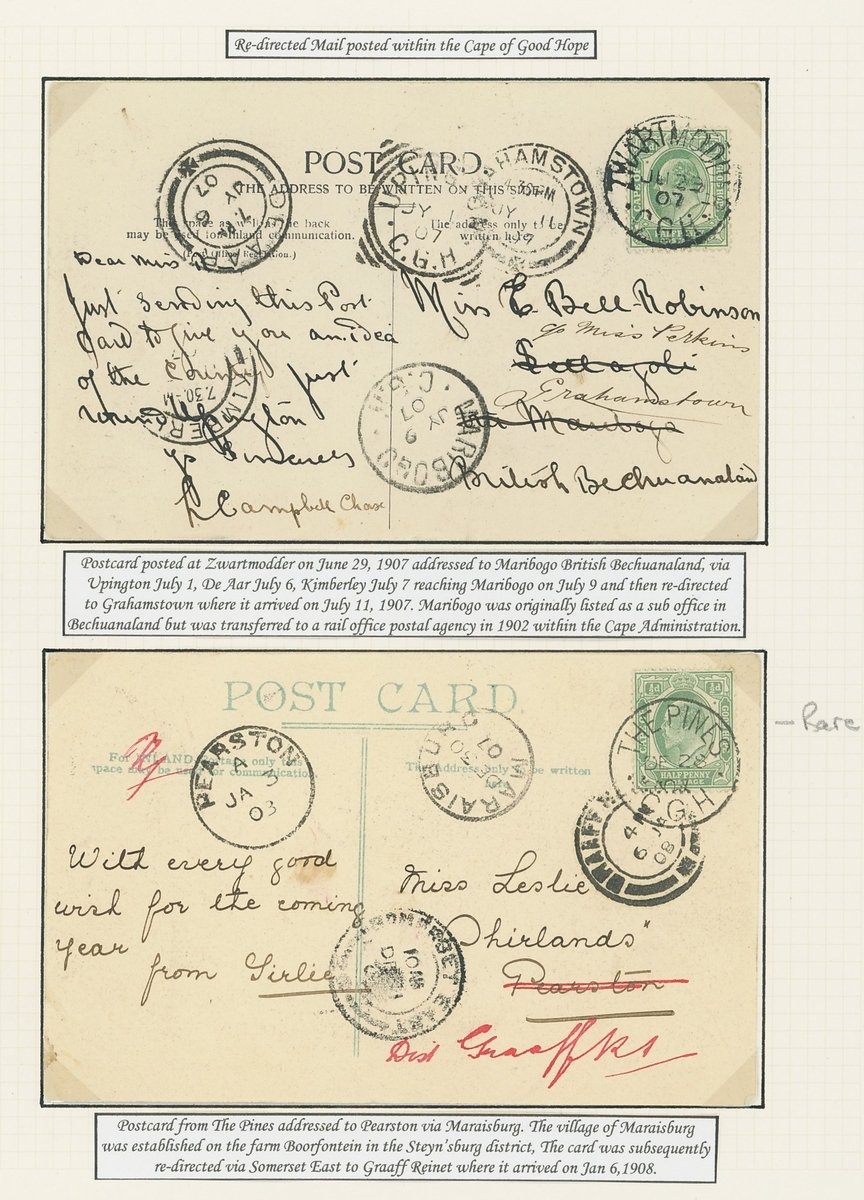 Re-directed Mail posted within the Cape of Good Hope
POST CARD.
THE ADDRESS TO BE WRITTEN ON THIS SIDE.
This space as well as the back
may be used for inland communication.
(Post Office Regulation.)
The address only to be
written here.
DE AAR
JY 6
07
UPINGTON
JY 1
07
C.G.H
GRAHAMSTOWN
4.30 PM
JY 11
07
ZWARTMODDER
JU 29
07
C.G.H.
HALF PENNY
Dear Miss
Just sending this Post
Card to give you an idea
of the Country just
round Upington
yrs Sincerely
L Campbell Chase
KIMBERLEY
7.30
MARIBOGO
JY 9
07
C.G.H.
Miss E. Bell-Robinson
c/o Miss Perkins
Grahamstown
Via Maribogo
British Bechuanaland
Postcard posted at Zwartmodder on June 29, 1907 addressed to Maribogo British Bechuanaland, via
Upington July 1, De Aar July 6, Kimberley July 7 reaching Maribogo on July 9 and then re-directed
to Grahamstown where it arrived on July 11, 1907. Maribogo was originally listed as a sub office in
Bechuanaland but was transferred to a rail office postal agency in 1902 within the Cape Administration.
POST CARD
For INLAND postage only this
space may be used for communication.
The Address only to be written
here.
PEARSTON
JA 3
03
MARAISBURG
DE 30
07
½d
HALF PENNY
POSTAGE
THE PINES
DE 28
C.G.H
GRAAFF
4
6 JA
08
— Rare
With every good
wish for the coming
year
from Girlie
SOMERSET EAST
Miss Leslie
"Shirlands"
Pearston
Dist Graaff Rt
Postcard from The Pines addressed to Pearston via Maraisburg. The village of Maraisburg
was established on the farm Boorfontein in the Steyn'sburg district, The card was subsequently
re-directed via Somerset East to Graaff Reinet where it arrived on Jan 6,1908.